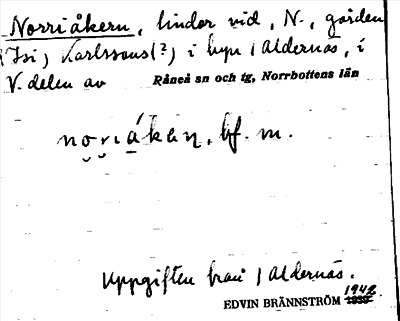 Norriåkern, lindor vid, N., gården
Isi, Karlssons(?) i byn Aldernäs, i
V. delen av Råneå sn och tg, Norrbottens län
noriákan, bf. m.
Uppgiften från Aldernäs.
1942
EDVIN BRÄNNSTRÖM 1939